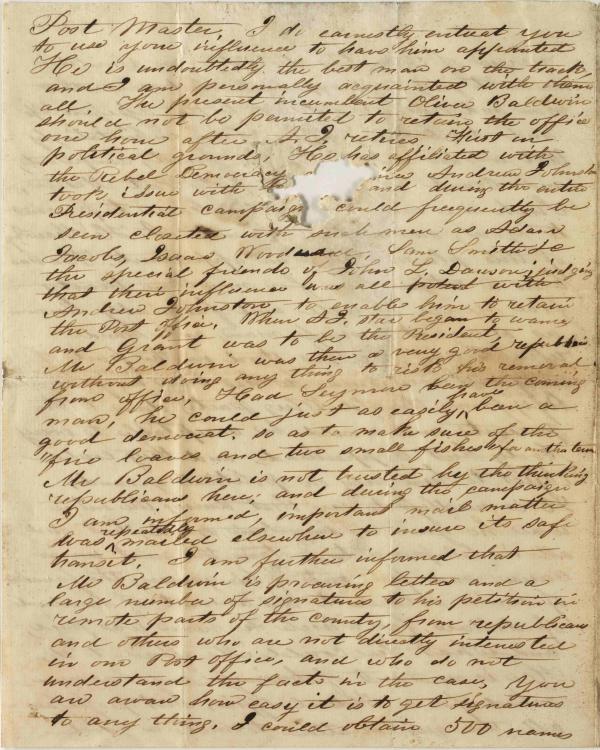 Post Master, I do earnestly entreat you
to use your influence to have him appointed
He is undoubtedly the best man on the track,
and I am personally acquainted with them
all. The present incumbent Oliver Baldwin
should not be permitted to retain the office
one hour after A. J. retires. First on
political grounds, He has affiliated with
the Rebel Democracy since Andrew Johnston
took issue with and during the entire
Presidential campaign could frequently be
seen closeted with such men as Adam
Jacobs, Isaac Woodward, Sam Smith &c
the special friends of John L. Dawson; judging
that their influence was all potent with
Andrew Johnston to enable him to retain
the Post office. When A J. star began to wane
and Grant was to be the President,
Mr Baldwin was then a very good republican
without doing any thing to risk his removal
from office, Had Seymour been the coming
man, he could just as easily have been a
good democrat. so as to make sure of the
"five loaves and two small fishes" for another term
Mr Baldwin is not trusted by the thinking
republicans here; and during the campaign
I am informed, important mail matter
was repeatedly mailed elsewhere to insure its safe
transit, I am further informed that
Mr Baldwin is procuring letters and a
large number of signatures to his petition in
remote parts of the county, from republicans
and others who are not directly interested
in our Post office, and who do not
understand the facts in the case, You
are aware how easy it is to get signatures
to any thing. I could obtain 500 names